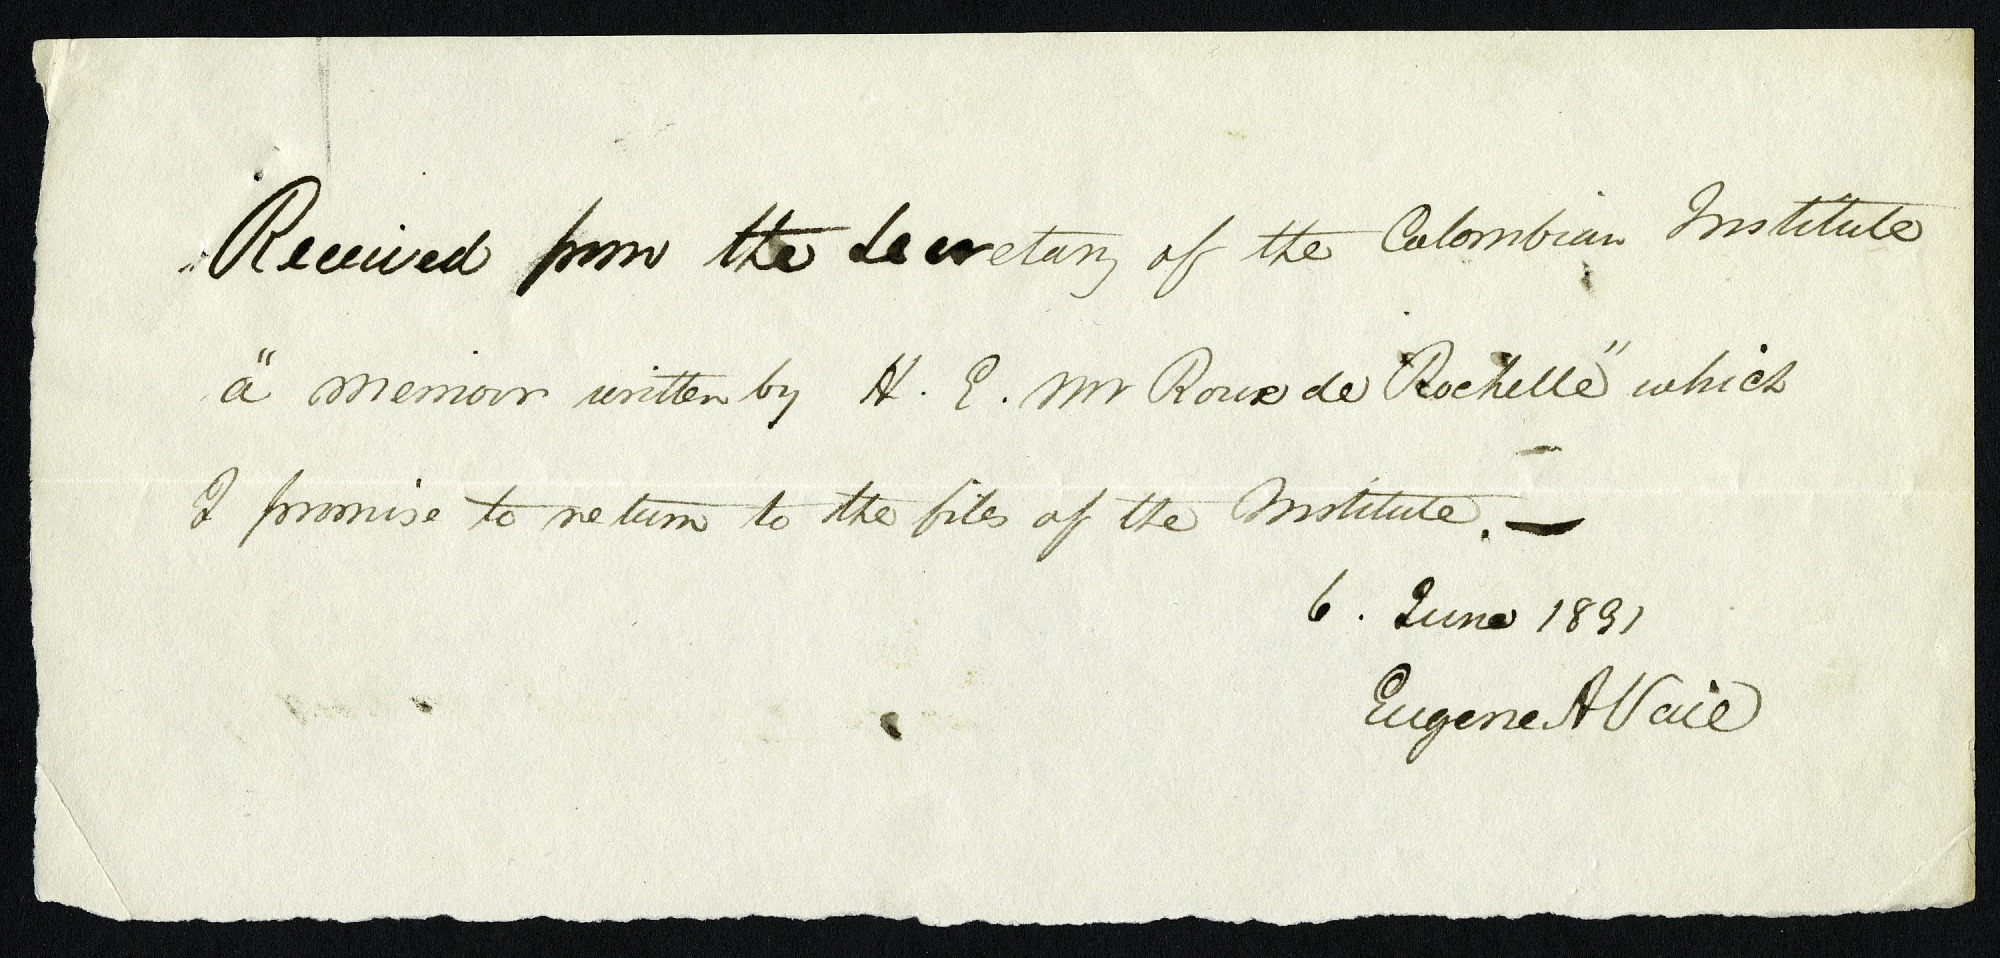 Received from the Secretary of the Colombian Institute
a "memoir written by H. E. Mr Roux de Rochelle" which
I promise to return to the files of the Institute. —
6. June 1831
Eugene A Vail